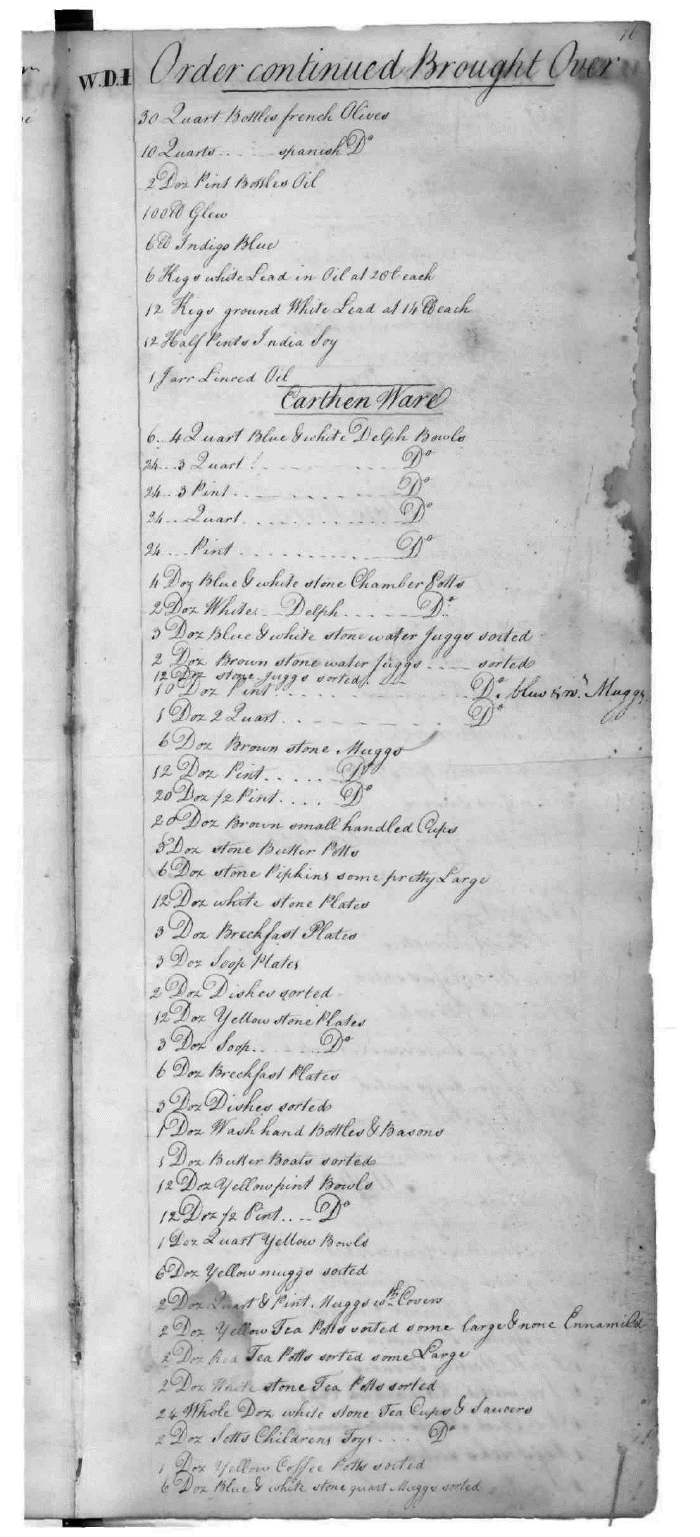 W.D.I Order continued Brought Over
30 Quart Bottles french Olives
10 Quarts.. spanish Do
2 Doz Pint Bottles Oil
100 lb Glew
6 lb Indigo Blue
6 Kegs white Lead in Oil at 28 lb each
12 Kegs ground White Lead at 14 lb each
12 Half Pints India Soy
1 Jarr Linced Oil
Earthen Ware
6.. 4 Quart Blue & white Delph Bowls
24... 3 Quart Do
24.. 3 Pint Do
24.. Quart Do
24... Pint Do
4 Doz Blue & white stone Chamber Potts
2 Doz White Delph Do
3 Doz Blue & white stone water Juggs sorted
2 Doz Brown stone water Juggs sorted
12 Doz stone Juggs sorted
10 Doz Pint Do. blue & w. Muggs
1 Doz 2 Quart Do
6 Doz Brown stone Muggs
12 Doz Pint Do
20 Doz 1/2 Pint Do
20 Doz Brown small handled Cups
3 Doz stone Butter Potts
6 Doz stone Pipkins some pretty Large
12 Doz white stone Plates
3 Doz Breckfast Plates
3 Doz Soop Plates
2 Doz Dishes sorted
12 Doz Yellow stone Plates
3 Doz Soop Do
6 Doz Breckfast Plates
3 Doz Dishes sorted
1 Doz Wash hand Bottles & Basons
1 Doz Butter Boats sorted
12 Doz Yellow pint Bowls
12 Doz 1/2 Pint.... Do
1 Doz Quart Yellow Bowls
6 Doz Yellow muggs sorted
2 Doz Quart & Pint Muggs wth Covers
2 Doz Yellow Tea Potts sorted some large & none Ennamild
2 Doz Red Tea Potts sorted some Large
2 Doz White stone Tea Potts sorted
24 Whole Doz white stone Tea Cups & Saucers
2 Doz Setts Childrens Toys.... Do
1 Doz Yellow Coffee Potts sorted
6 Doz Blue & white stone quart Muggs sorted